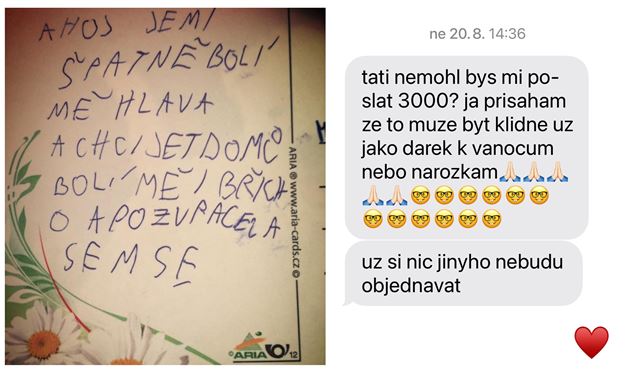 AHOJ JEMI
ŠPATNĚ BOLÍ
MĚ HLAVA
A CHCI JET DOMČ
BOLÍ MĚ I BŘICH
O A POZVRACELA
SEM SE
ARIA ® www.aria-cards.cz ©
©ARIA 12
ne 20. 8. 14:36
tati nemohl bys mi po-
slat 3000? ja prisaham
ze to muze byt klidne uz
jako darek k vanocum
nebo narozkam🙏🏻🙏🏻🙏🏻
🙏🏻🙏🏻🤓🤓🤓🤓🤓🤓🤓
🤓🤓🤓🤓🤓🤓🤓
uz si nic jinyho nebudu
objednavat